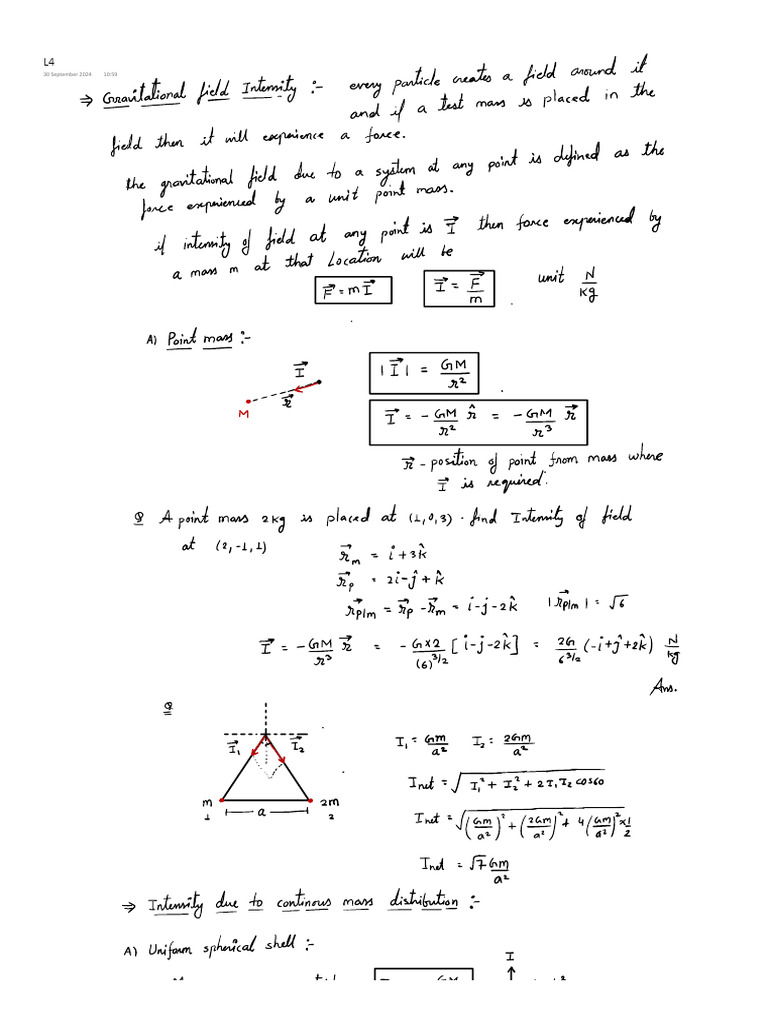 L4
30 September 2024 10:59
⇒ Gravitational field Intensity :- every particle creates a field around it
and if a test mass is placed in the
field then it will experience a force.
the gravitational field due to a system at any point is defined as the
force experienced by a unit point mass.
if intensity of field at any point is I⃗ then force experienced by
a mass m at that Location will be
F⃗ = m I⃗ I⃗ = F⃗/m unit N/kg
A) Point mass :-
I⃗ r⃗ M
|I⃗| = GM/r²
I⃗ = - GM/r² r̂ = - GM/r³ r⃗
r⃗ - position of point from mass where
I⃗ is required.
Q A point mass 2kg is placed at (1,0,3) . find Intensity of field
at (2,-1,1)
r⃗m = i + 3k̂
r⃗p = 2i - ĵ + k̂
r⃗p/m = r⃗p - r⃗m = i - j - 2k̂ |r⃗p/m| = √6
I⃗ = - GM/r³ r⃗ = - G×2/(6)^3/2 [i - j - 2k̂] = 2G/6^3/2 (-i + ĵ + 2k̂) N/kg
Ans.
Q
I⃗1 I⃗2
m 1 a 2m 2
I1 = Gm/a² I2 = 2Gm/a²
Inet = √(I1² + I2² + 2 I1 I2 cos60)
Inet = √((Gm/a²)² + (2Gm/a²)² + 4(Gm/a²)² × 1/2)
Inet = √7 Gm/a²
⇒ Intensity due to continous mass distribution :-
A) Uniform spherical shell :-
I